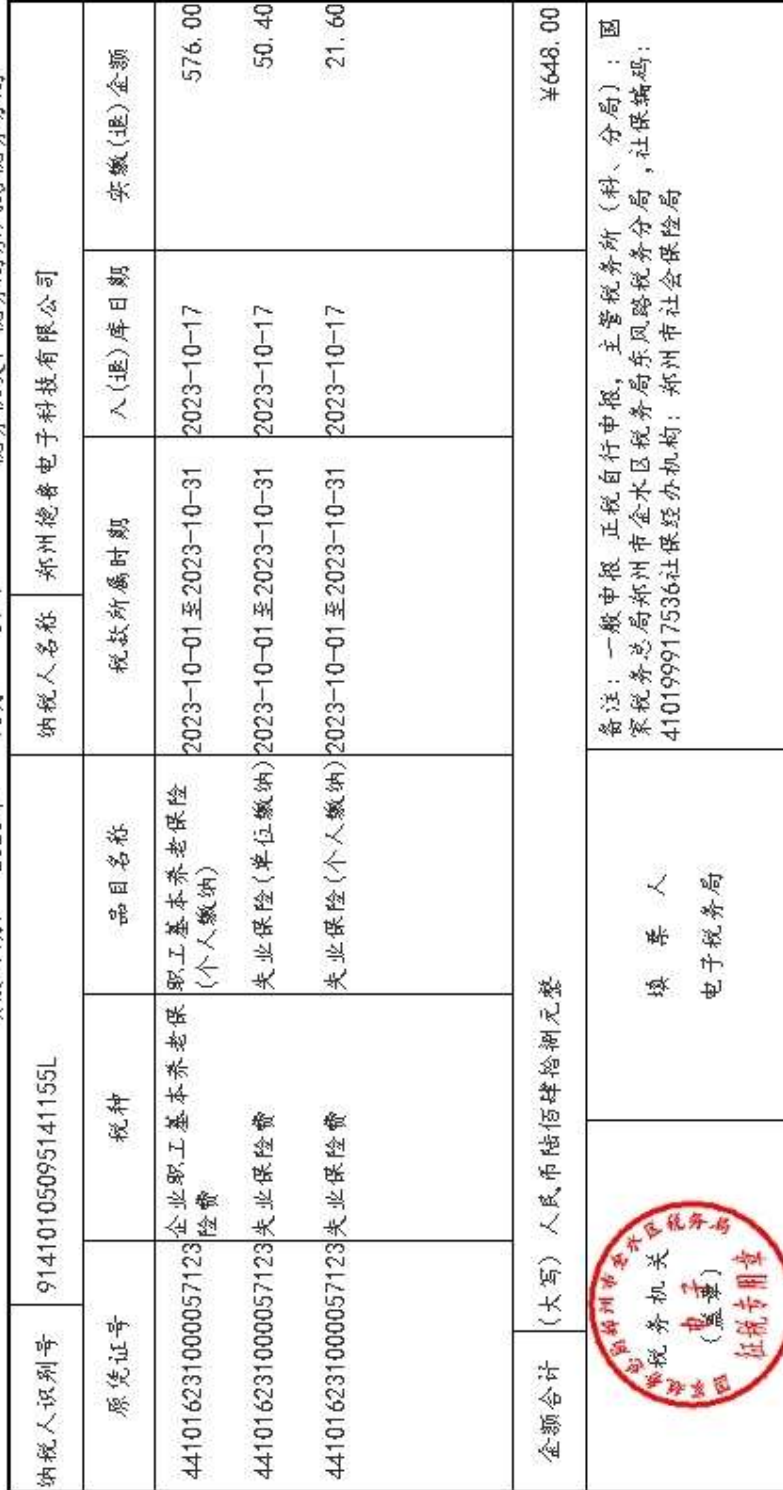 纳税人识别号 91410105095141155L 纳税人名称 郑州德睿电子科技有限公司
原凭证号 税种 品目名称 税款所属时期 入(退)库日期 实缴(退)金额
441016231000057123 企业职工基本养老保险费 职工基本养老保险(个人缴纳) 2023-10-01至2023-10-31 2023-10-17 576.00
441016231000057123 失业保险费 失业保险(单位缴纳) 2023-10-01至2023-10-31 2023-10-17 50.40
441016231000057123 失业保险费 失业保险(个人缴纳) 2023-10-01至2023-10-31 2023-10-17 21.60
金额合计 (大写) 人民币陆佰肆拾捌元整 ¥648.00
税务机关
(盖章)
国家税务总局郑州市金水区税务局
电子
征税专用章
填票人
电子税务局
备注: 一般申报 正税自行申报, 主管税务所(科、分局): 国
家税务总局郑州市金水区税务局东风路税务分局, 社保编码:
410199917536社保经办机构: 郑州市社会保险局